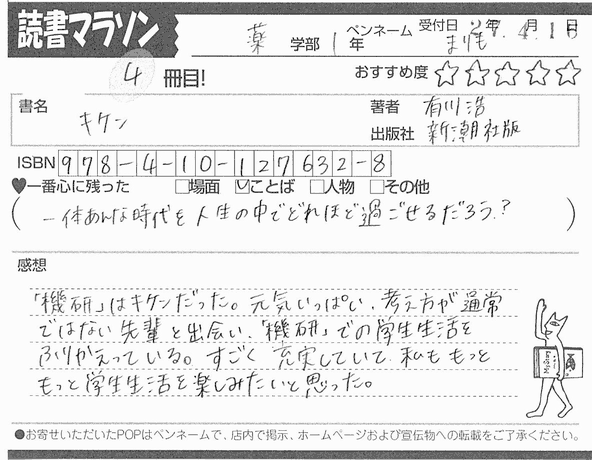 読書マラソン
薬 学部 1 年 ペンネーム まりも 受付日 年 4月1 日
4 冊目! おすすめ度 ☆☆☆☆☆
書名 キケン 著者 有川浩
出版社 新潮社版
ISBN 978-4-10-127632-8
♥一番心に残った □場面 ☑ことば □人物 □その他
(一体あんな時代を人生の中でどれほど過ごせるだろう?)
感想
「機研」はキケンだった。元気いっぱい、考え方が通常
ではない先輩と出会い、「機研」での学生生活を
ふりかえっている。すごく充実していて、私ももっと
もっと学生生活を楽しみたいと思った。
●お寄せいただいたPOPはペンネームで、店内で掲示、ホームページおよび宣伝物への転載をご了承ください。